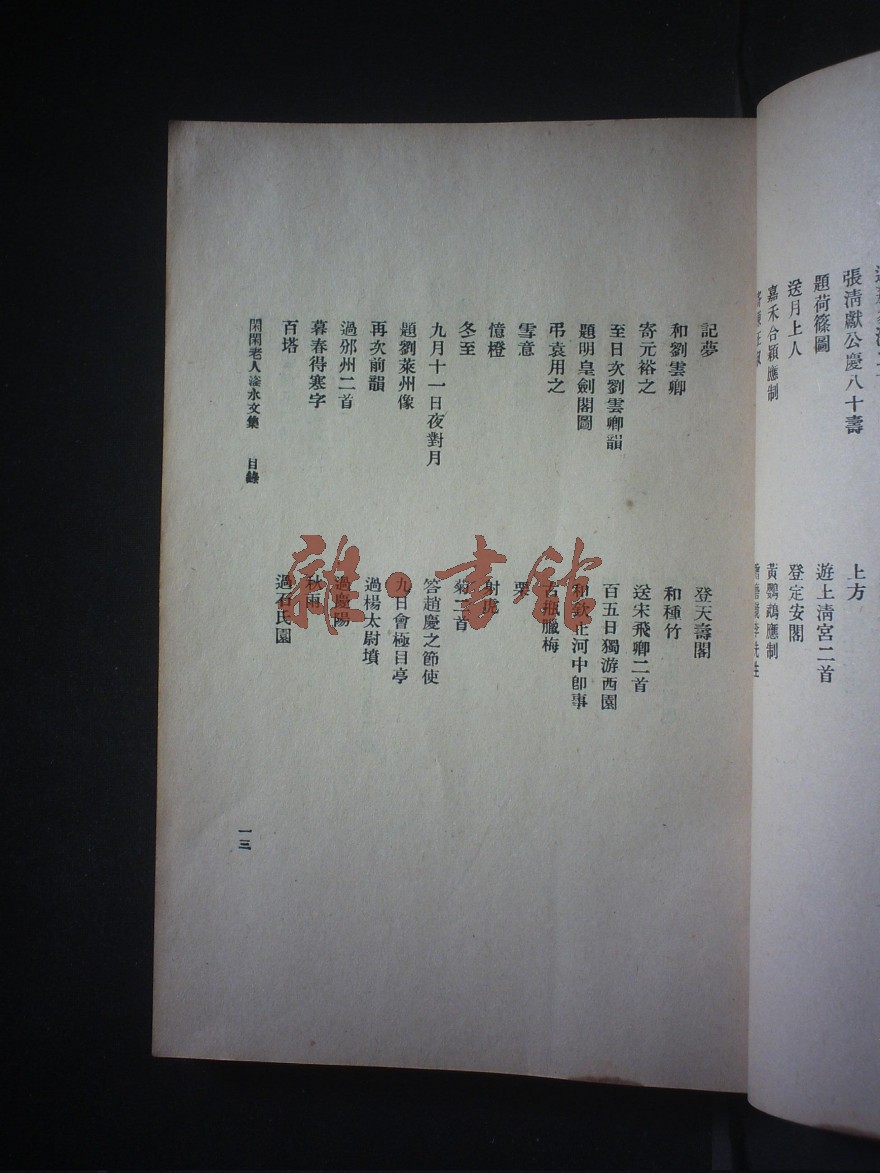 張清獻公慶八十壽
題荷篠圖
送月上人
嘉禾合穎應制
上方
遊上清宮二首
登定安閣
黃鸚鵡應制
記夢
和劉雲卿
寄元裕之
至日次劉雲卿韻
題明皇劍閣圖
弔袁用之
雪意
憶橙
冬至
九月十一日夜對月
題劉萊州像
再次前韻
過邠州二首
暮春得寒字
百塔
登天壽閣
和種竹
送宋飛卿二首
百五日獨游西園
和欽止河中卽事
古瓶臘梅
栗
射虎
菊二首
答趙慶之節使
九日會極目亭
過楊太尉墳
過慶陽
秋雨
過石氏園
閑閑老人滏水文集 目錄
一三
雜·書館